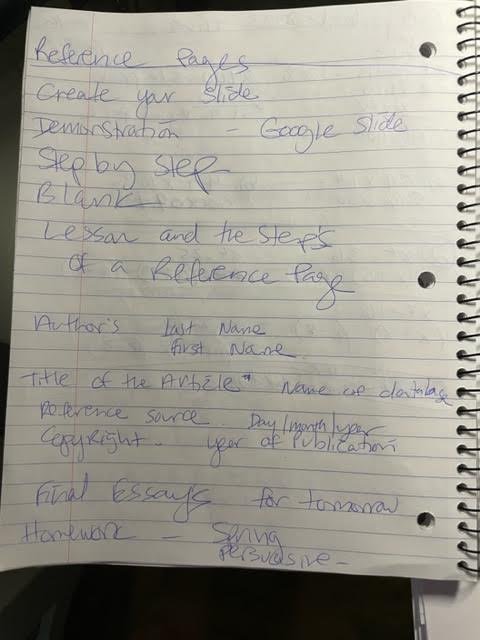 Reference Pages
Create your slide
Demonstration - Google Slide
Step by step
Blank
Lesson and the Steps
of a Reference Page
Author's Last Name
First Name
Title of the Article* Name of database
Reference source Day/month/year
CopyRight. year of Publication
Final Essays for tomorrow
Homework -
Persuasive -